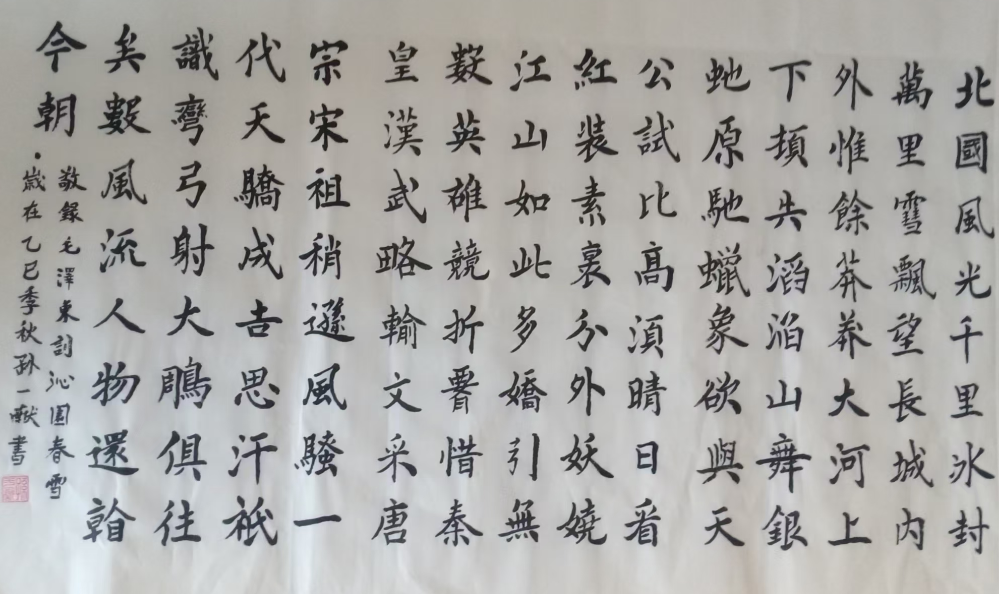 北國風光千里冰封
萬里雪飄望長城內
外惟餘莽莽大河上
下頓失滔滔山舞銀
虵原馳蠟象欲與天
公試比高須晴日看
紅裝素裹分外妖嬈
江山如此多嬌引無
數英雄競折腰惜秦
皇漢武略輸文采唐
宗宋祖稍遜風騷一
代天驕成吉思汗祗
識彎弓射大鵰俱往
矣數風流人物還看
今朝
敬錄毛澤東詞沁園春雪
歲在乙巳季秋孫一猷書